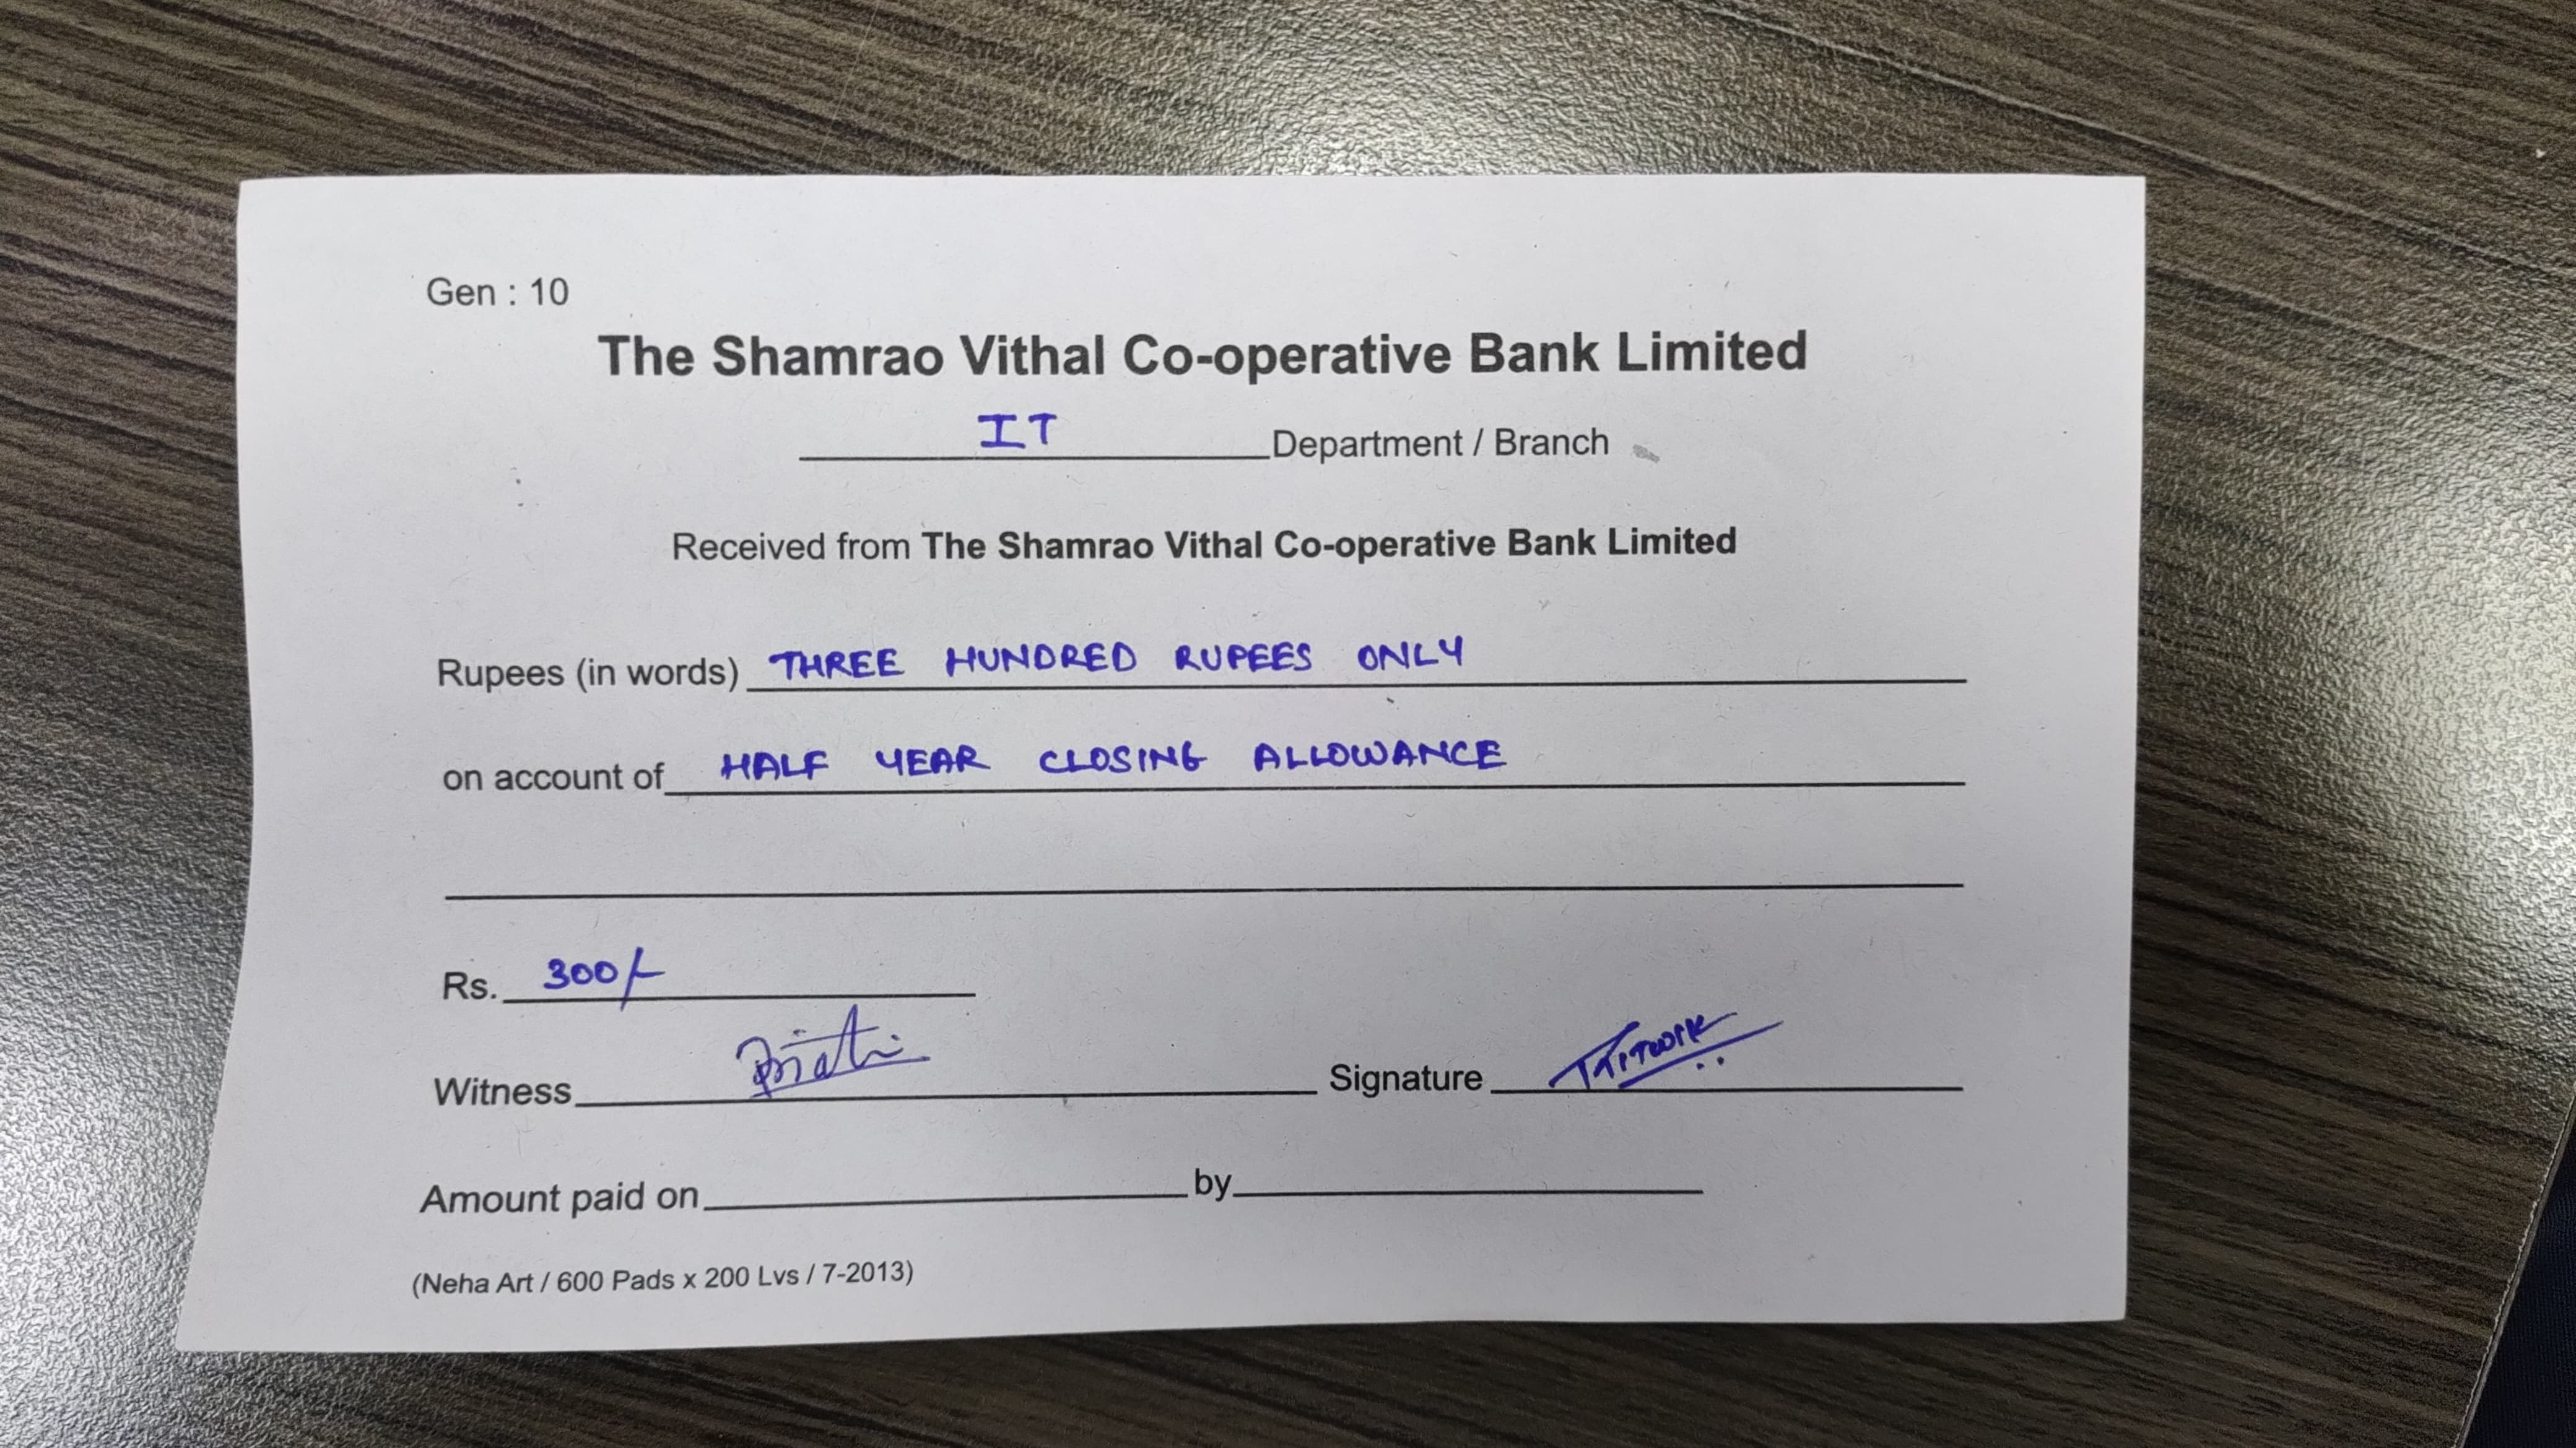 Gen : 10
The Shamrao Vithal Co-operative Bank Limited
IT Department / Branch
Received from The Shamrao Vithal Co-operative Bank Limited
Rupees (in words) THREE HUNDRED RUPEES ONLY
on account of HALF YEAR CLOSING ALLOWANCE
Rs. 300/-
Witness Signature
Amount paid on by
(Neha Art / 600 Pads x 200 Lvs / 7-2013)